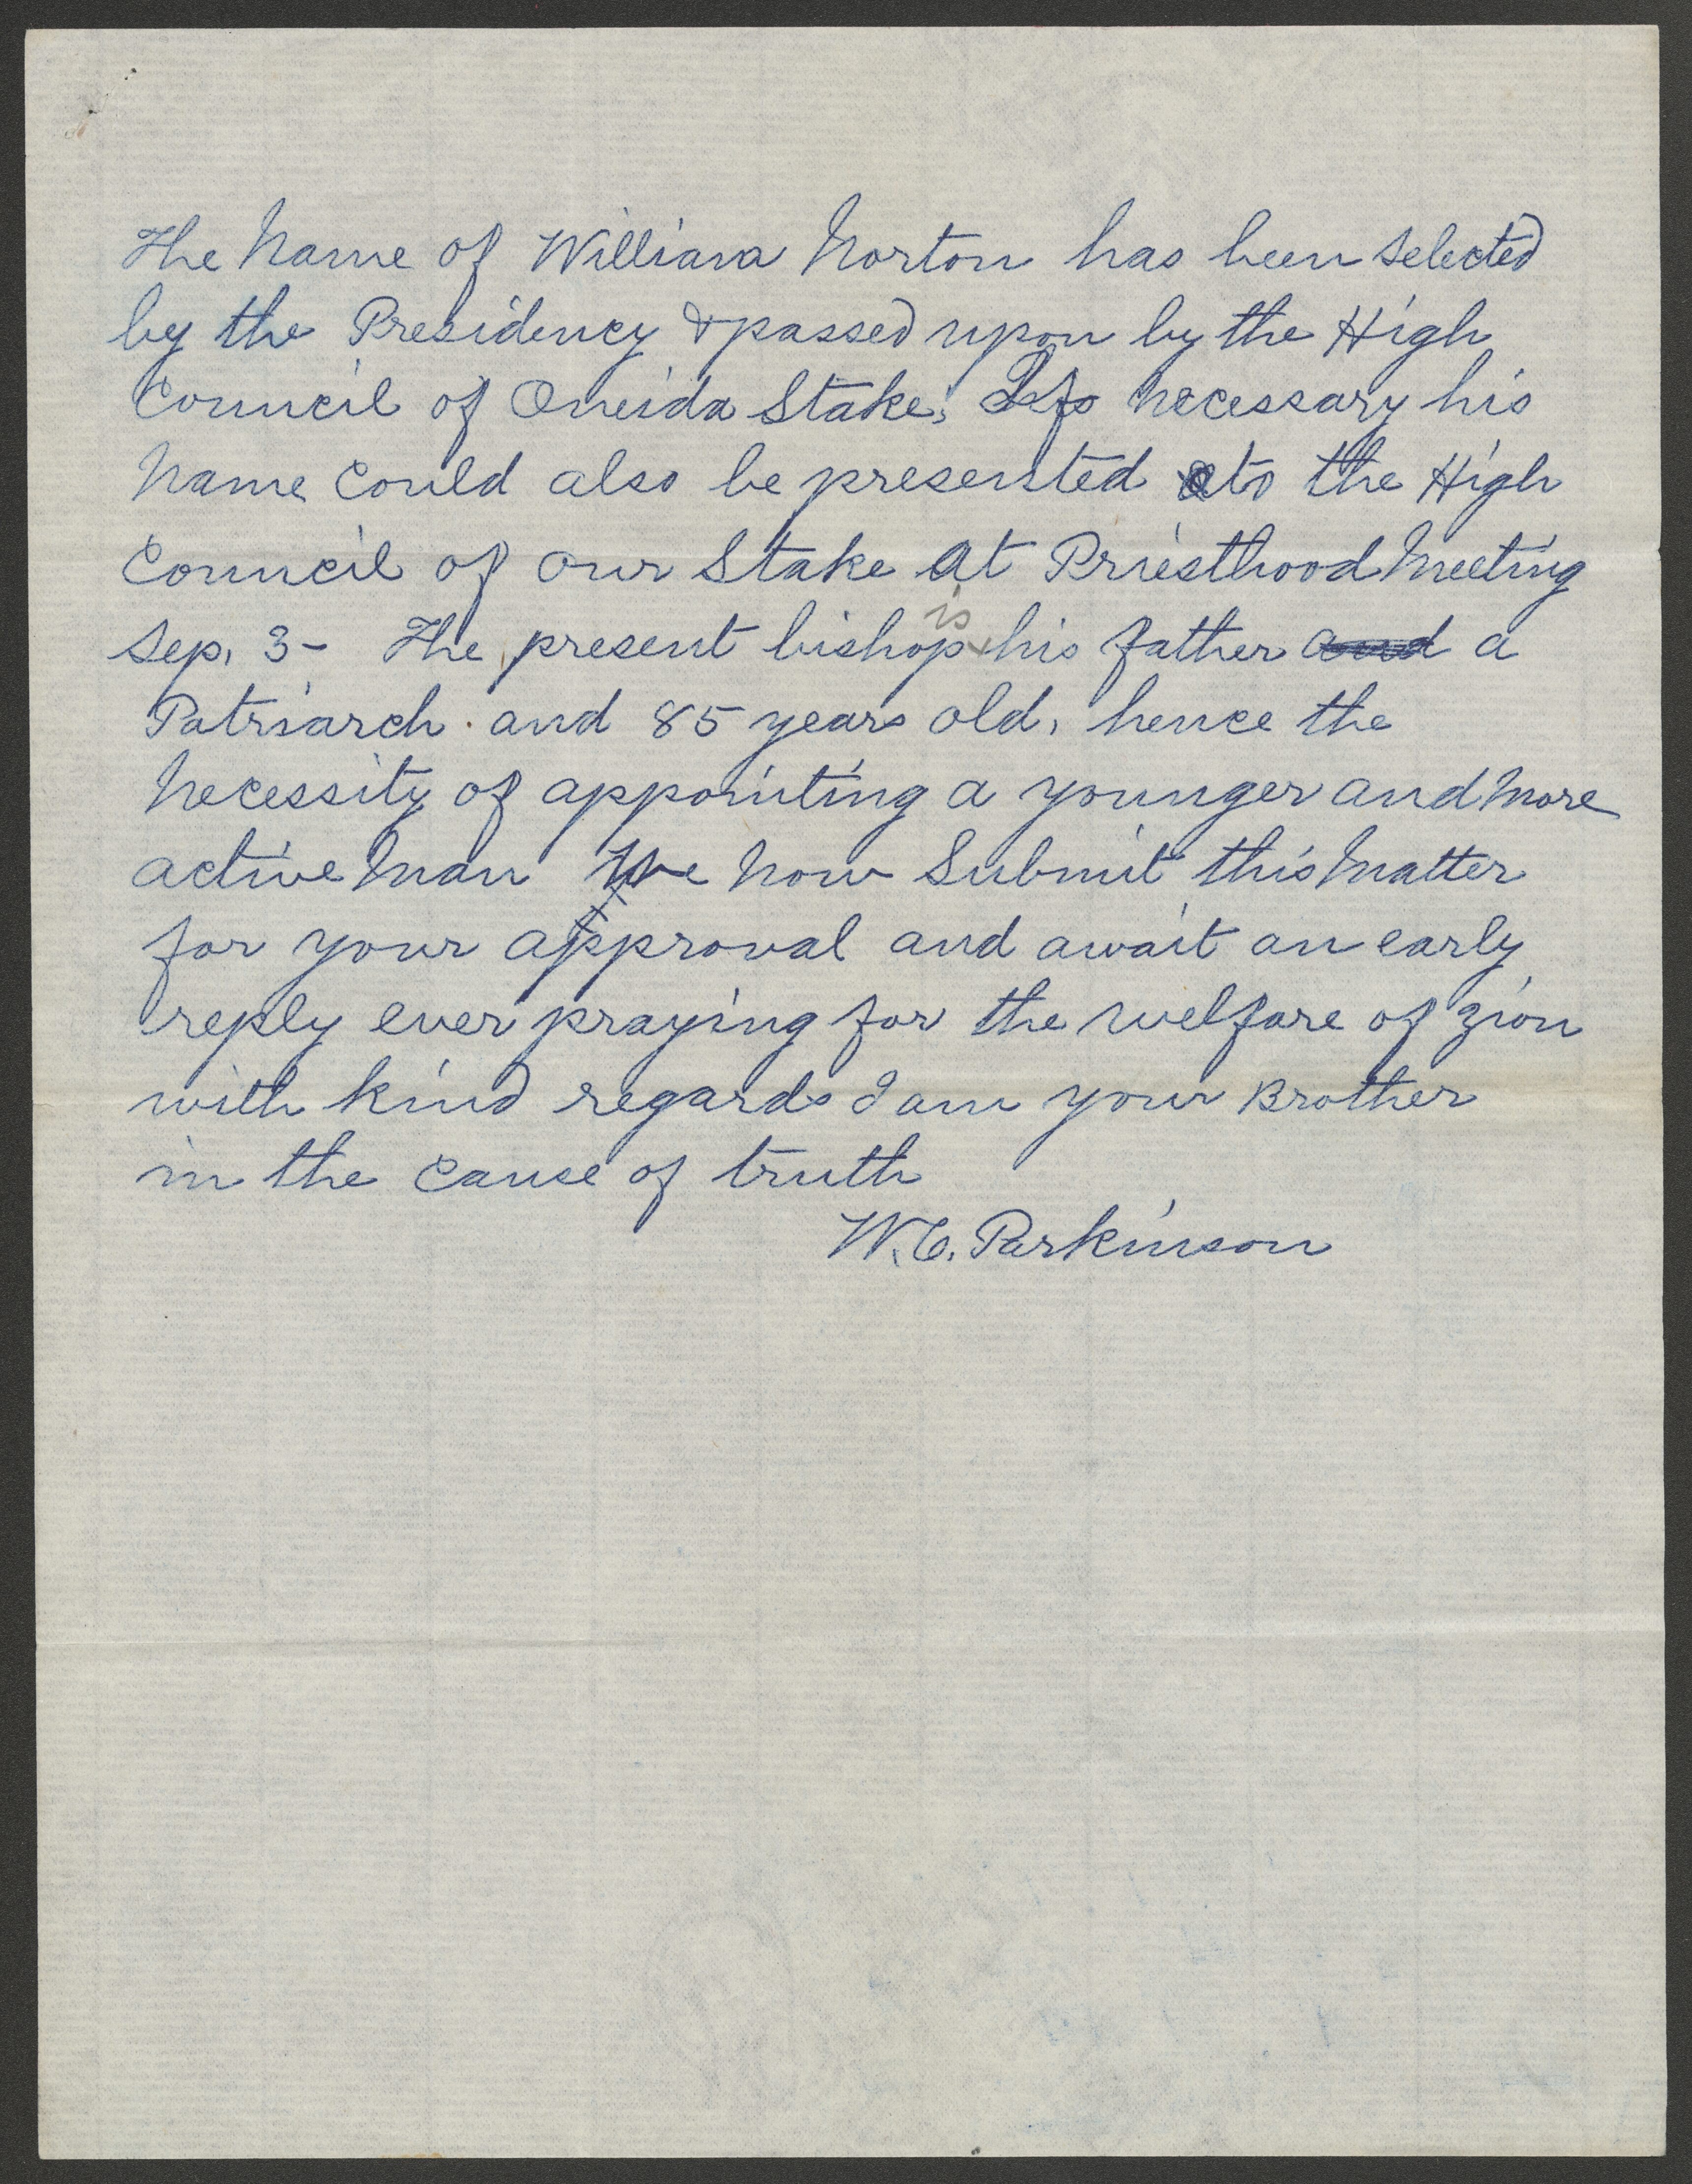 The Name of William Norton has been selected
by the Presidency & passed upon by the High
Council of Oneida Stake, If necessary his
Name Could also be presented to the High
Council of our Stake at Priesthood Meeting
Sep, 3- The present bishop is his father and a
Patriarch. and 85 years old, hence the
Necessity of appointing a younger and More
active Man We Now Submit this Matter
for your approval and await an early
reply ever praying for the welfare of Zion
with kind regards I am your Brother
in the Cause of truth
W.C. Parkinson